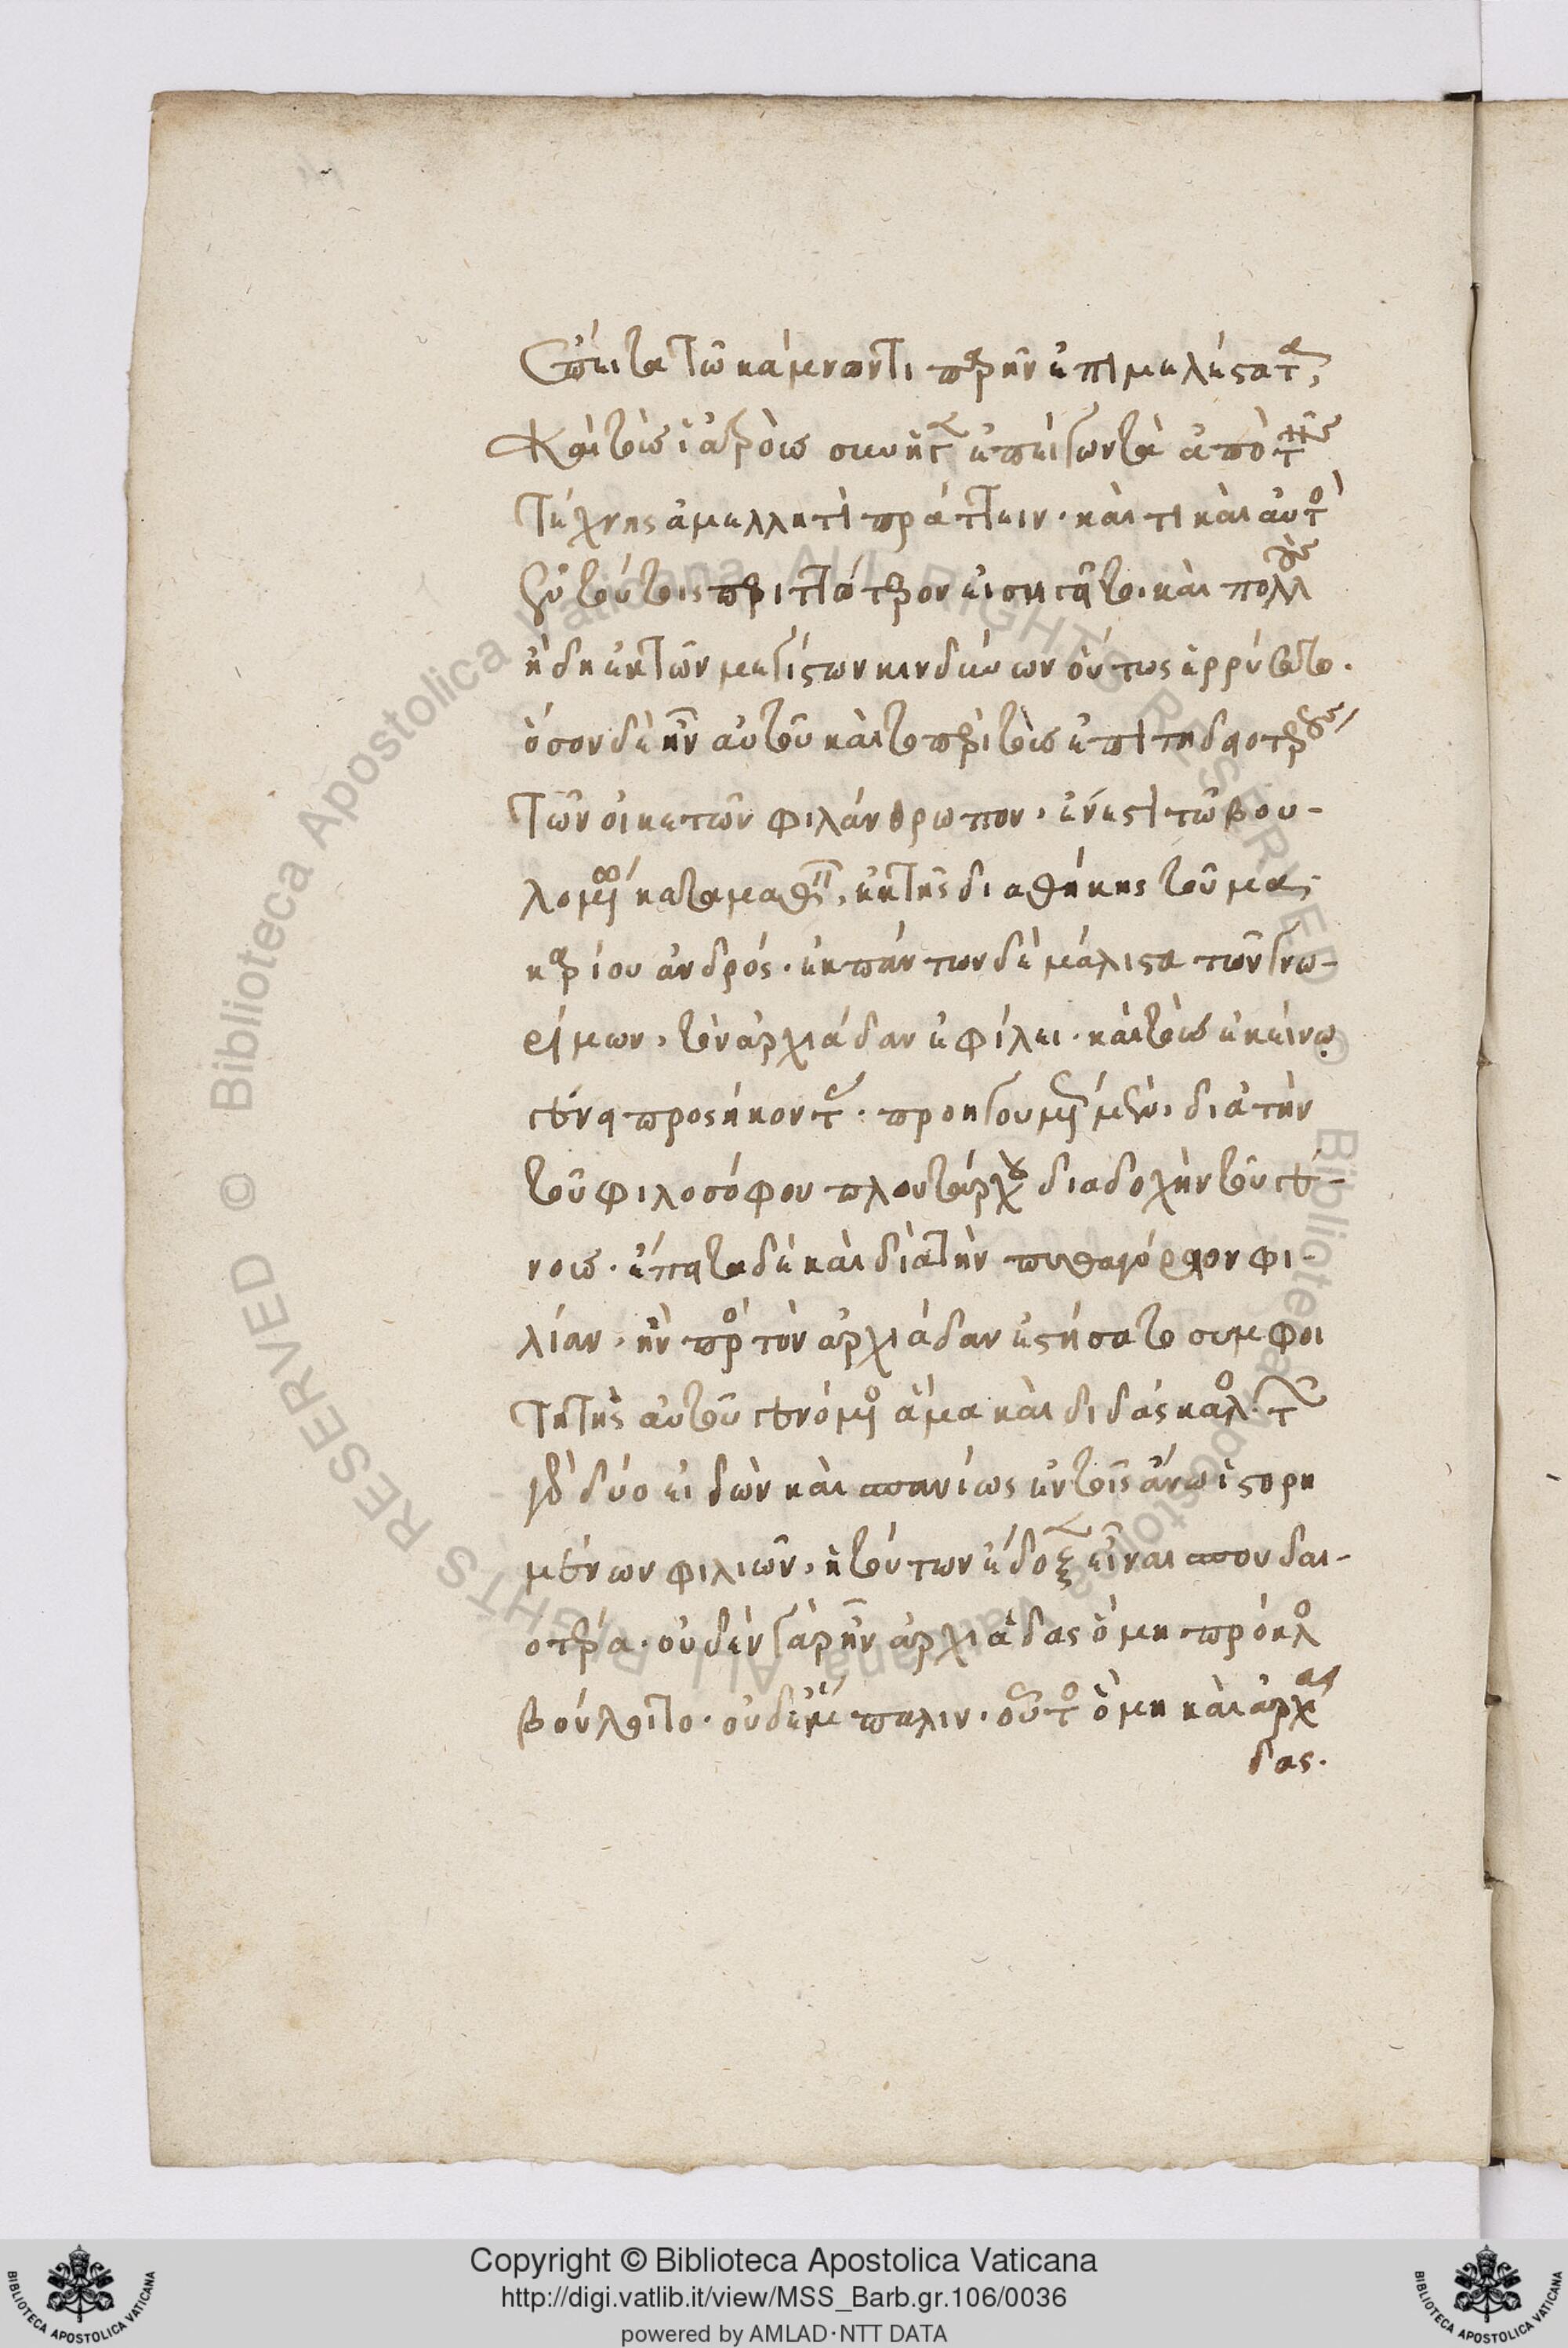 ἔπειτα τῶ κάμνοντι παρῆν ἐπιμελέστατα,
Καὶ τοὺς ἰατροὺς συνῆστε ἐπείγων τὰ ἀπὸ τῆς
τέχνης ἀμελλητὶ πράττειν. καί τι καὶ αὐτὸς
ἐν τούτοις περιττότερον εἰσηγεῖτο. καὶ πολλοὺς
ἤδη ἐκ τῶν μεγίστων κινδύνων οὕτως ἐρρύσατο.
ὅσον δὲ ἦν αὐτοῦ καὶ το πρὸς τοὺς ἐπιτηδειοτέρους
τῶν οἰκετῶν φιλάνθρωπον. ἔνεστι τῶ βου-
λομένω καταμαθεῖν, ἐκ τῆς διαθήκης τοῦ μα-
καρίου ἀνδρός. ἐκ πάντων δὲ μάλιστα τῶν γνω-
ρίμων, τὸν ἀρχιάδαν ἐφίλει. καὶ τοὺς ἐκείνω
γένει προσήκοντας. προηγουμένως μὲν, διὰ τὴν
τοῦ φιλοσόφου πλουτάρχου διαδοχὴν τοῦ γέ-
νους. ἔπειτα δὲ καὶ διὰ τὴν πυθαγόρειον φι-
λίαν. ἣν πρὸς τὸν ἀρχιάδαν ἐστήσατο συμφοι
τητὴς αὐτοῦ γενόμενος ἅμα καὶ διδάσκαλος. τῶν
γὰρ δύο εἰδῶν καὶ σπανίως ἐν τοῖς ἄνω ἱστορη
μένων φιλιῶν, ἡ τούτων ἔδοξεν εἶναι σπουδαι-
οτέρα. οὐδὲν γὰρ ἦν ἀρχιάδας ὃ μὴ πρόκλος
βούλοιτο. οὐδὲ ἔμπαλιν. οὗτος ὃ μὴ καὶ ἀρχιά
δας.
Copyright © Biblioteca Apostolica Vaticana
http://digi.vatlib.it/view/MSS_Barb.gr.106/0036
powered by AMLAD·NTT DATA